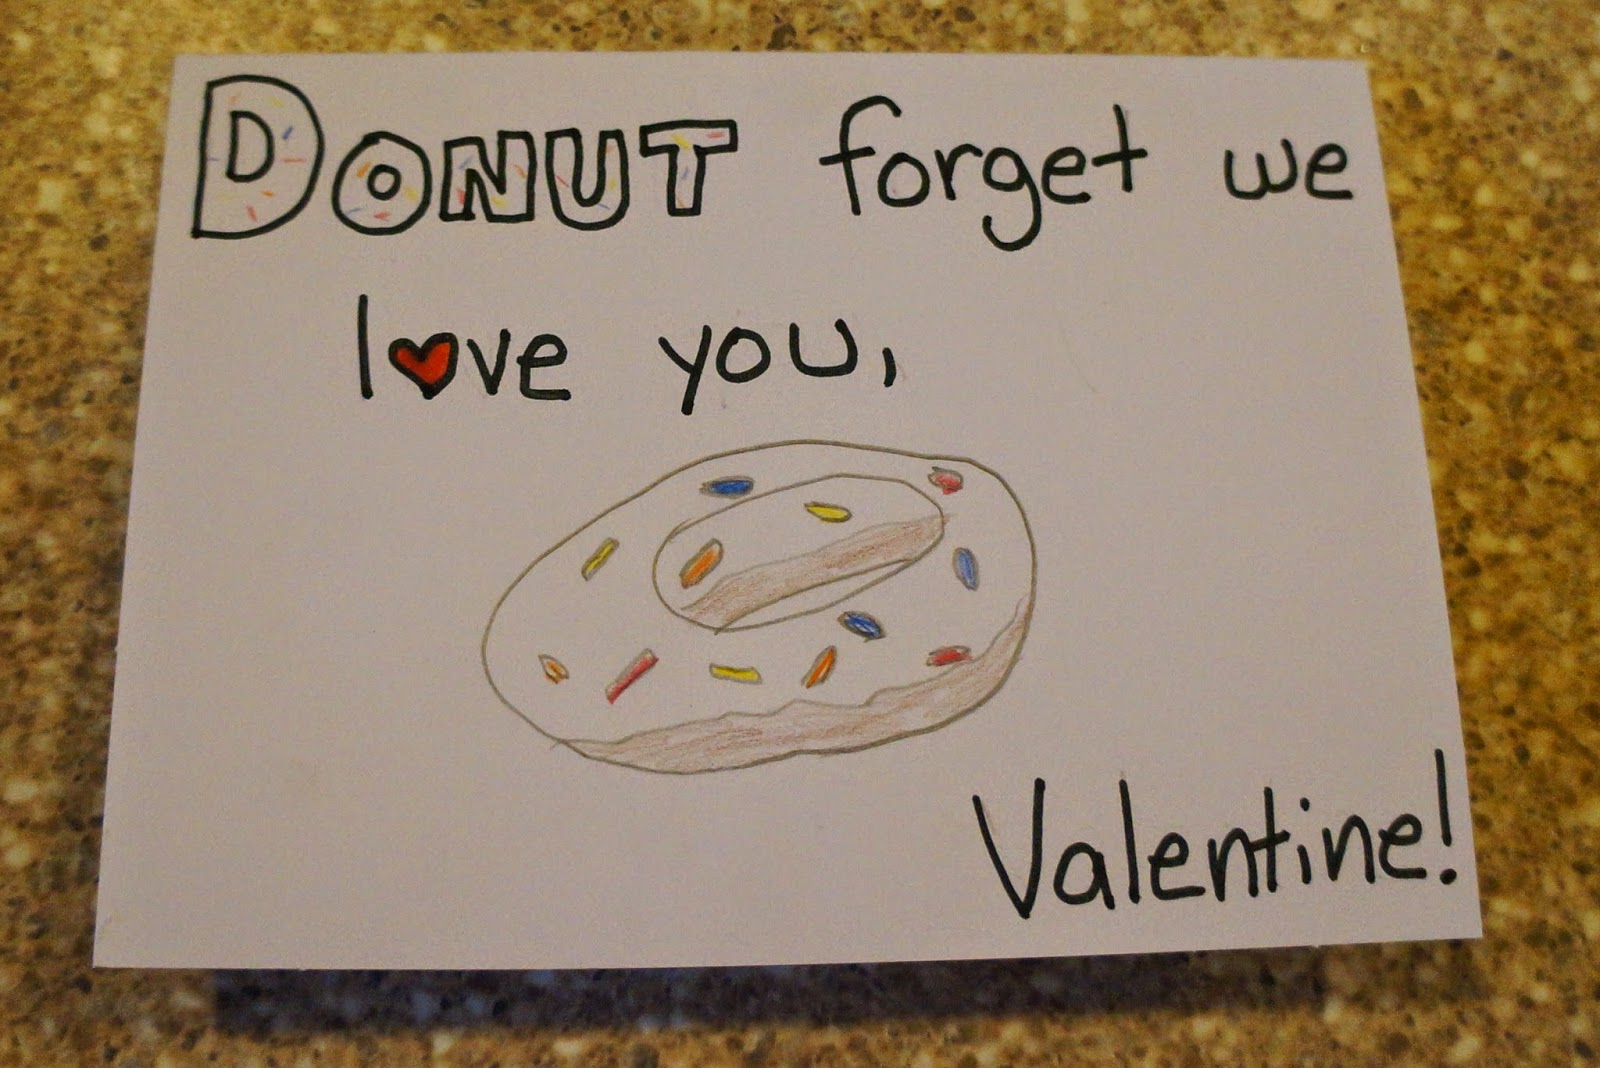 DONUT forget we
l❤ve you,
Valentine!